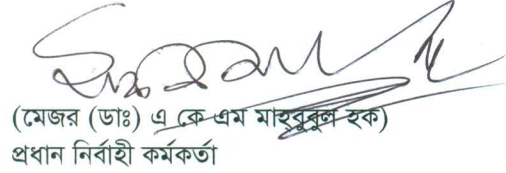 (মেজর (ডাঃ) এ কে এম মাহবুবুল হক)
প্রধান নির্বাহী কর্মকর্তা